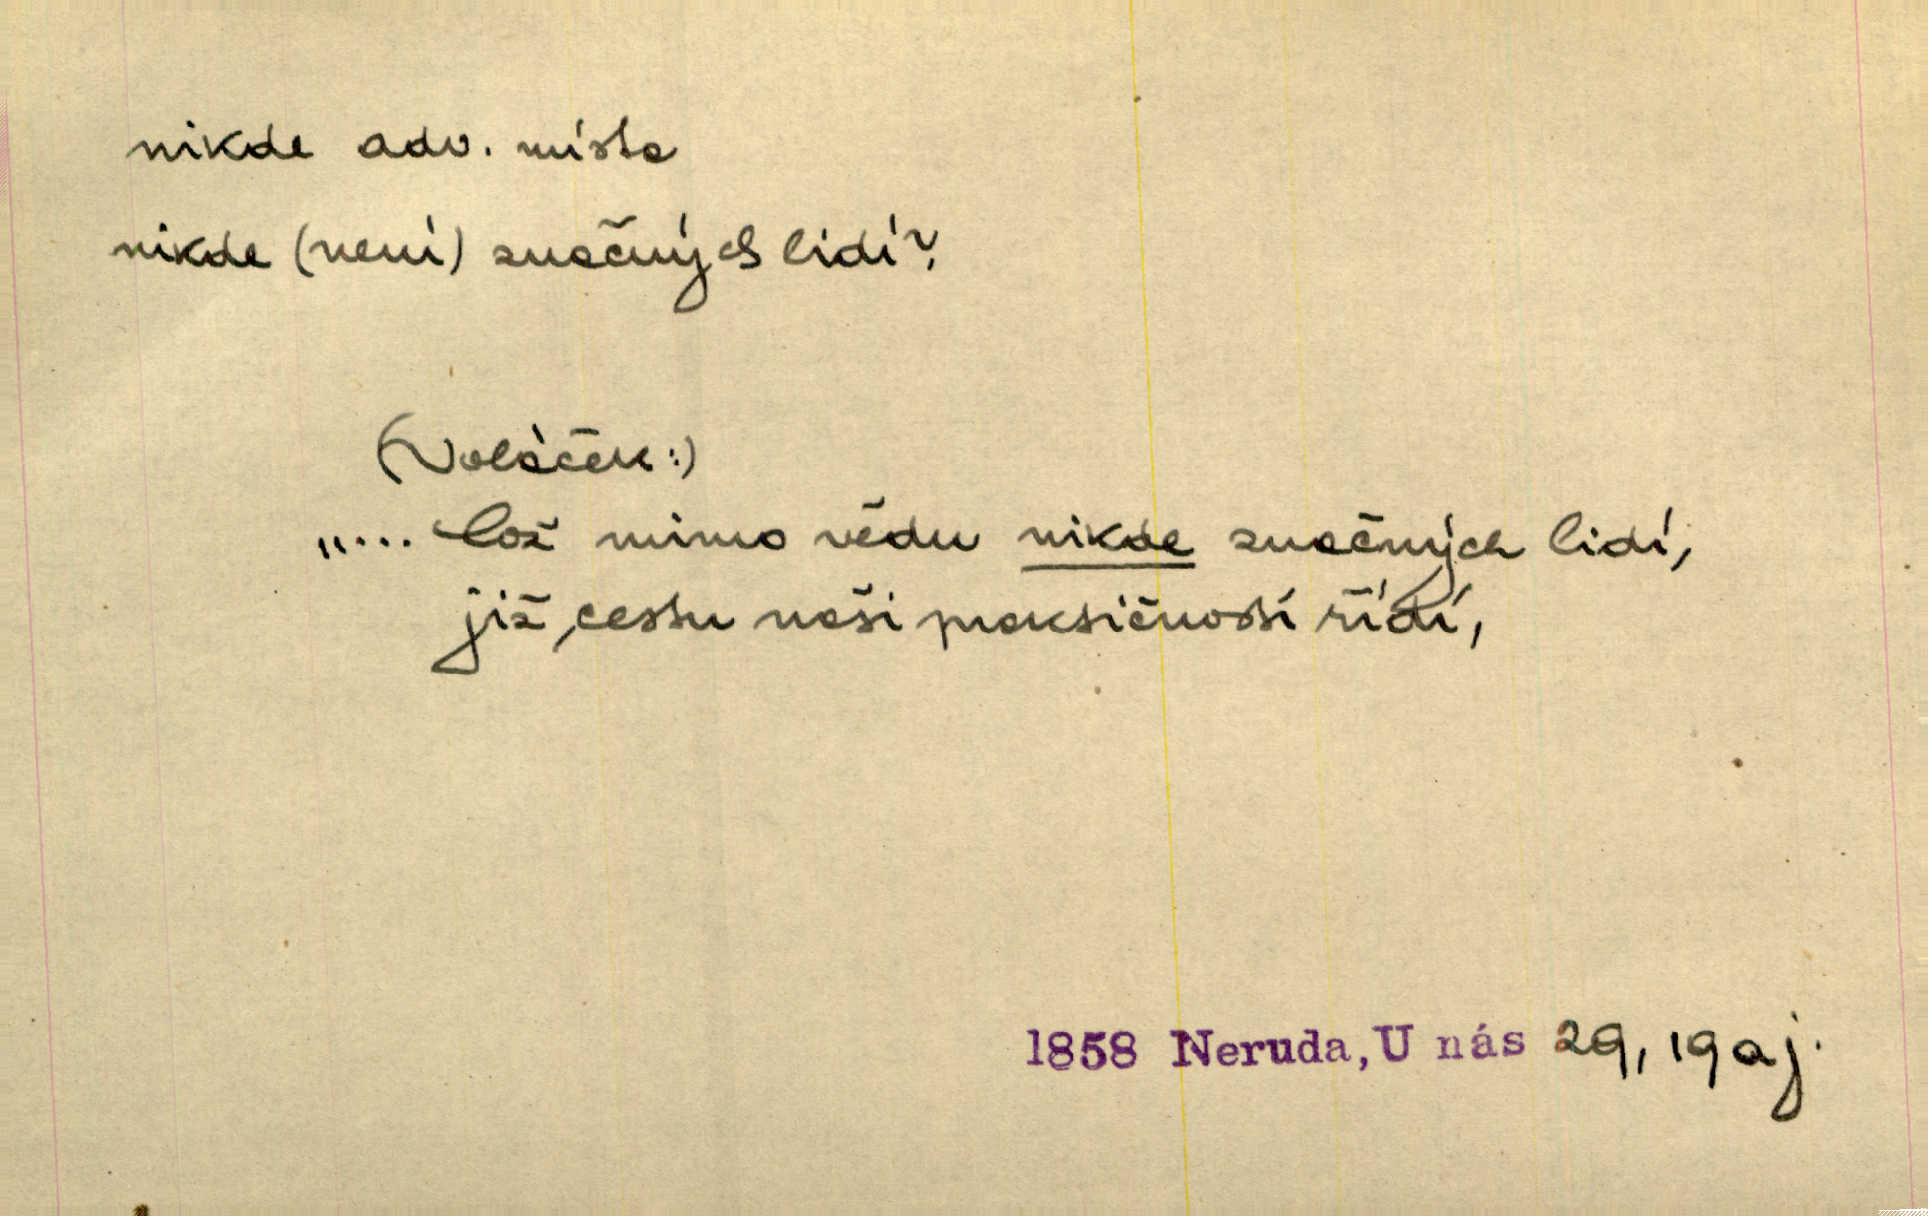 nikde adv. místa
nikde (není) značných lidí?
(Voláček:)
„.... Což mimo vědu nikde značných lidí,
již cestu naši praktičností řídí,
1858 Neruda, U nás 29, 19 aj.